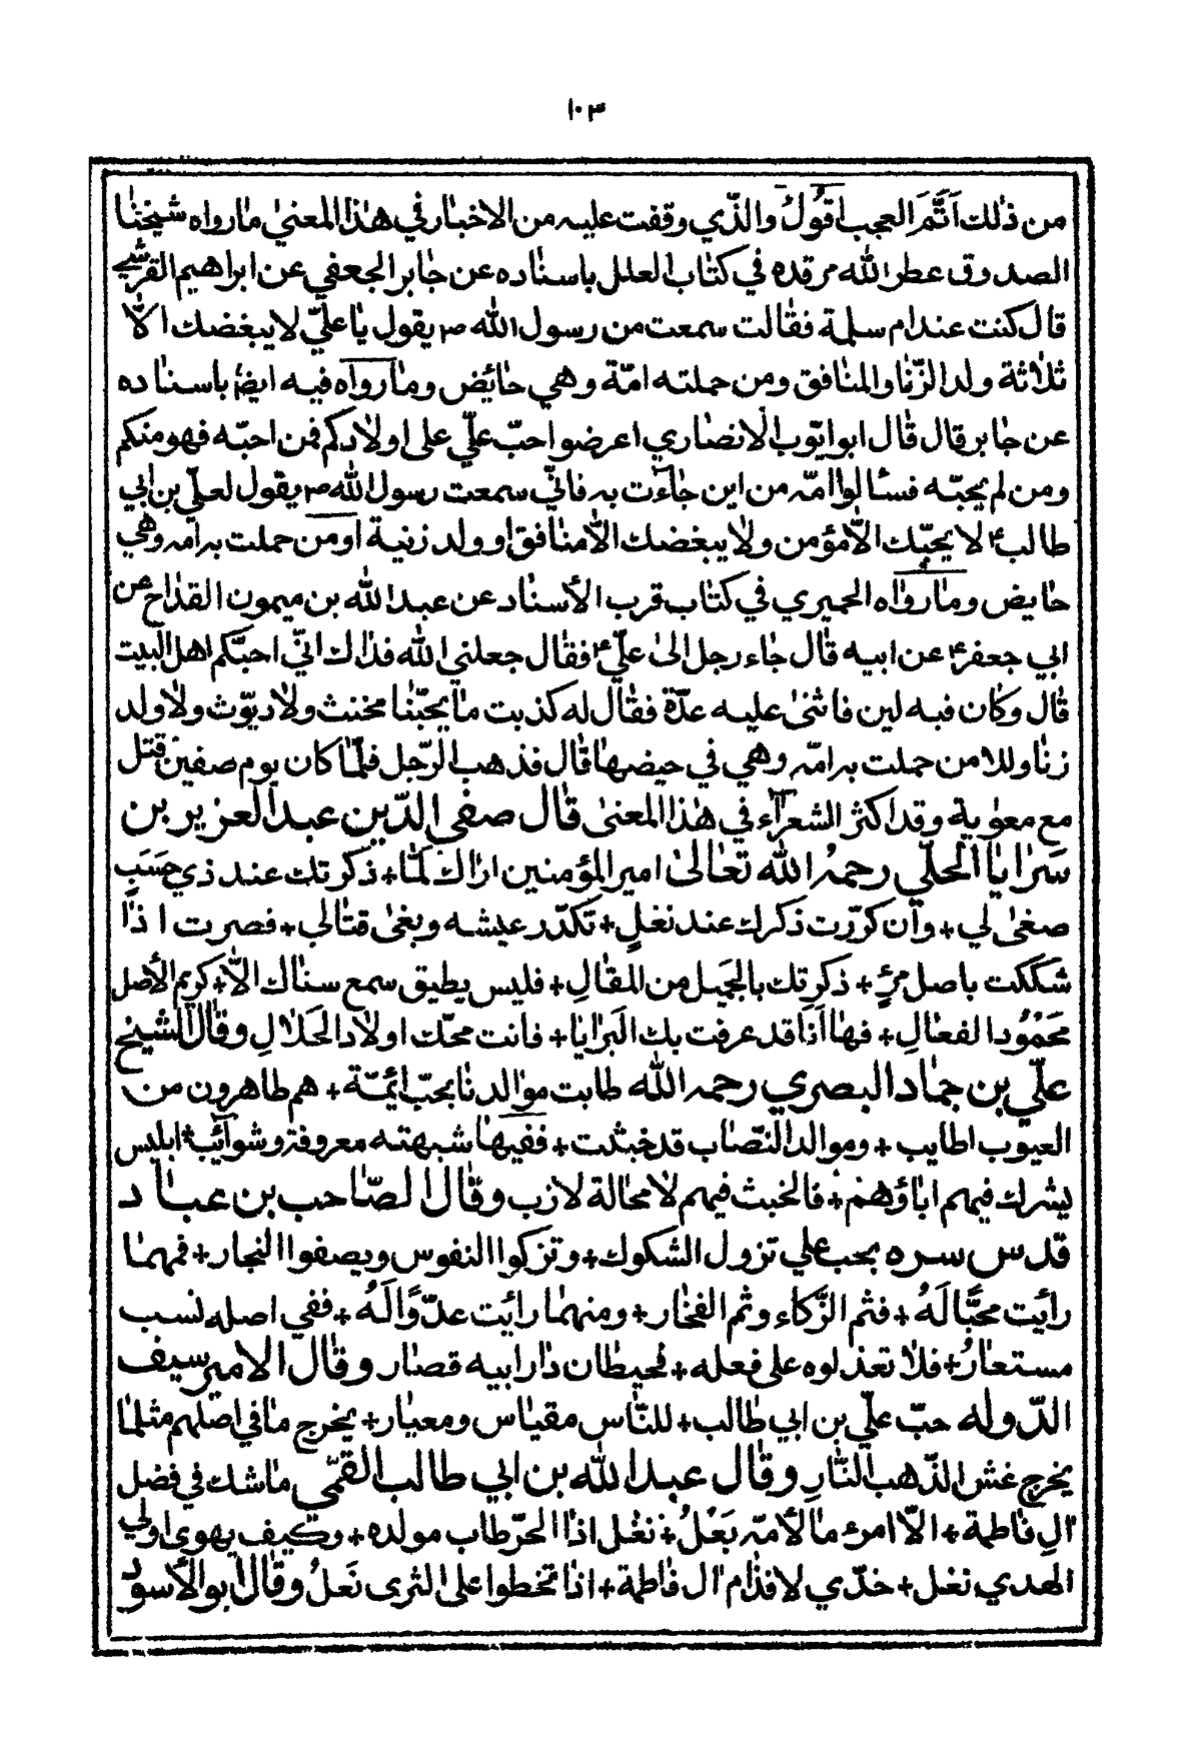 ١٠٣
من ذلك اَتَمَّ العجب اقُولُ والذّي وقفت عليه من الاخبار في هذا المعنىٰ ما رواه شيخنا
الصدوق عطر الله مرقده في كتاب العلل باسناده عن جابر الجعفي عن ابراهيم القرشي
قال كنت عند ام سلمة فقالت سمعت من رسول الله ص يقول يا عليّ لا يبغضك الاّ
ثلاثة ولد الزّنا والمنافق ومن حملته امّة وهي حائض وما رواه فيه ايضا باسناده
عن جابر قال قال ابو ايّوب الانصاري اعرضوا حبّ عليّ على اولادكم فمن احبّه فهو منكم
ومن لم يحبّه فسئالوا امّه من اين جاءت به فانّي سمعت رسول الله ص يقول لعليّ بن ابي
طالب ع لا يحبّك الاّ مؤمن ولا يبغضك الاّ منافق او ولد زنية او من حملت به امه وهي
حايض وما رواه الحميري في كتاب قرب الأسناد عن عبد الله بن ميمون القداح عن
ابي جعفر ع عن ابيه قال جاء رجل الىٰ عليّ ع فقال جعلني الله فداك انّي احبّكم اهل البيت
قال وكان فيه لين فاثنىٰ عليه عدّة فقال له كذبت ما يحبّنا مخنث ولا ديّوث ولا ولد
زنا ولا من حملت به امّه وهي في حيضها قال فذهب الرّجل فلمّا كان يوم صفين قتل
مع معوية وقد اكثر الشعراء في هذا المعنىٰ قال صفي الدّين عبد العزيز بن
سَرايا الحلّي رحمه الله تعالىٰ امير المؤمنين اراك لمّا + ذكرتك عند ذي حَسَبٍ
صغىٰ لي + وان كرّرت ذكرك عند نغلٍ + تكدّر عيشه وبغىٰ قتالي + فصرت اذا
شككت باصل مرءٍ + ذكرتك بالجَميل من المقالِ + فليس يطيق سمع سناك الاّ + كريم الأصل
محَمْوُد الفعالِ + فها اَنَا قد عرفت بك البَرايا + فانت محّك اولاد الحَلالِ وقال الشيخ
عليّ بن حماد البصري رحمه الله طابت موالدنا بحبّ ائمّة + هم طاهرون من
العيوب اطايب + وموالد النصّاب قد خبثت + ففيها شبهته معروفة وشوائب + ابليس
يشرك فيهم اباؤهم + فالخبث فيهم لا محالة لازب وقال الصّاحب بن عباد
قدس سره بحب علي تزول الشكوك + وتزكوا النفوس ويصفوا النجار + فمهما
رأيت محبًّا لَهُ + فثم الزَّكاء وثم الفخار + ومنهما رائيت عدّوًّا لَهُ + ففي اصله نسب
مستعارُ + فلا تعذلوه على فعله + فحيطان دار ابيه قصار وقال الامير سيف
الدّوله حبّ عليّ بن ابي طالب + للنّاس مقياس ومعيار + يخرج ما في اصلهم مثلما
يخرج غش الذّهب النّارِ وقال عبد الله بن ابي طالب القمّي ما شك في فضل
آل فاطمة + الاّ امرء ما لأمّه بَعْلُ + نغل اذا الحرّ طاب مولده + وكيف يهوى اولي
الهدي نغل + خدّي لاقدام آل فاطمة + اذا تخطوا على الثرى نَعلُ وقال ابو الأسود